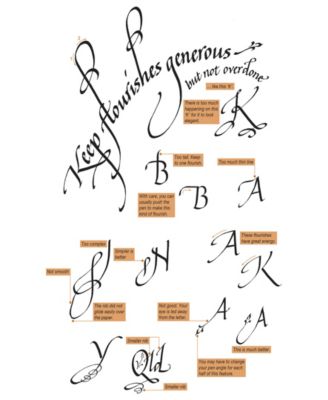 Keep flourishes generous
but not overdone
... like this 'k'
There is too much
happening on this
'K' for it to look
elegant.
K
Too tall. Keep
to one flourish.
Too much thin line
B
B
A
With care, you can
usually push the
pen to make this
kind of flourish.
These flourishes
have great energy.
A
K
Too complex
Simpler is
better
H
Not smooth
The nib did not
glide easily over
the paper.
Not good. Your
eye is led away
from the letter.
A
A
This is much better.
y
Smaller nib
Old
You may have to change
your pen angle for each
half of this feature.
Smaller nib